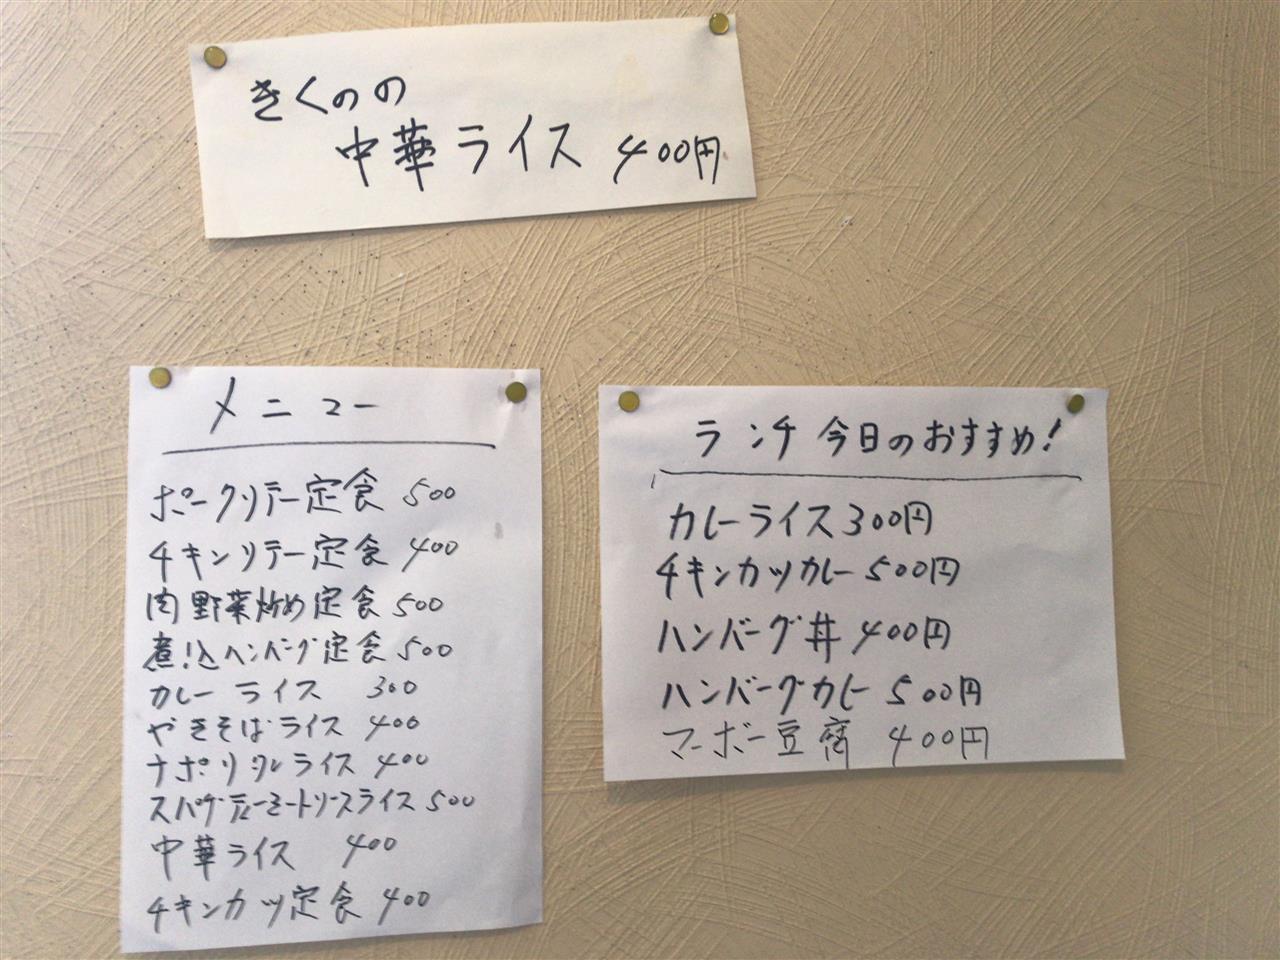 きくのの
中華ライス 400円
メニュー
ポークソテー定食 500
チキンソテー定食 400
肉野菜炒め定食 500
煮込ハンバーグ定食 500
カレーライス 300
やきそばライス 400
ナポリタンライス 400
スパゲティーミートソースライス 500
中華ライス 400
チキンカツ定食 400
ランチ 今日のおすすめ!
カレーライス 300円
チキンカツカレー 500円
ハンバーグ丼 400円
ハンバーグカレー 500円
マーボー豆腐 400円